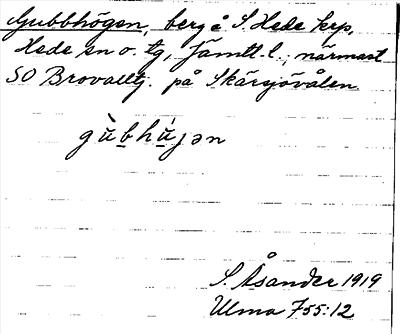 Gubbhögen, berg å S. Hede krp,
Hede sn o. tg, Jämtl. l., närmast
SO Brovallg. på Skärsjövålen
gùbhújən
S. Åsander 1919
Ulma 755:12